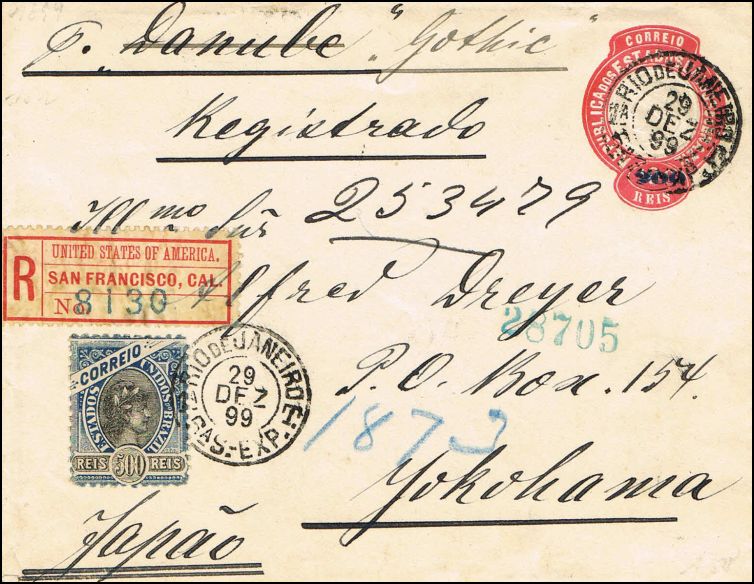 p. Danube "Gothic"
CORREIO
RIO DE JANEIRO
29
DEZ
99
REIS
Registrado
253479
Illmo Snr
Alfred Dreyer
UNITED STATES OF AMERICA.
R SAN FRANCISCO, CAL.
No. 8130
28705
P.O. Box. 154.
1873
CORREIO
ESTADOS UNIDOS DO BRAZIL
REIS 500 REIS
RIO DE JANEIRO
29
DEZ
99
AS.-EXP.
Yokohama
Japão